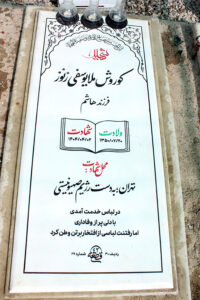 شهید
کوروش ملایوسفی زنوز
فرزند هاشم
ولادت شهادت
محل شهادت:
تهران؛ به دست رژیم صهیونیستی
در لباس خدمت آمدی
با دلی پر از وفاداری
اما رفتنت لباسی از افتخار بر تن وطن کرد